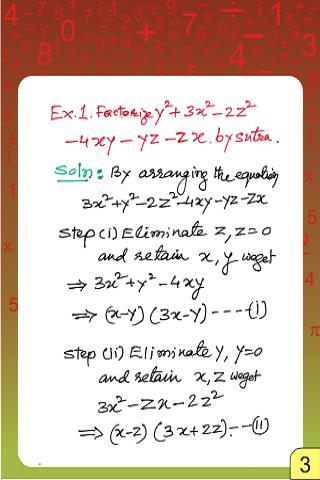 Ex.1. Factorize y²+3x²-2z²
-4xy-yz-zx. by sutra.
Soln: By arranging the equation
3x²+y²-2z²-4xy-yz-zx
step (i) Eliminate z, z=0
and retain x, y we get
⇒ 3x²+y²-4xy
⇒ (x-y) (3x-y)----(i)
step (ii) Eliminate y, y=0
and retain x, z we get
3x²-zx-2z²
⇒ (x-z) (3x+2z).--(ii)
3